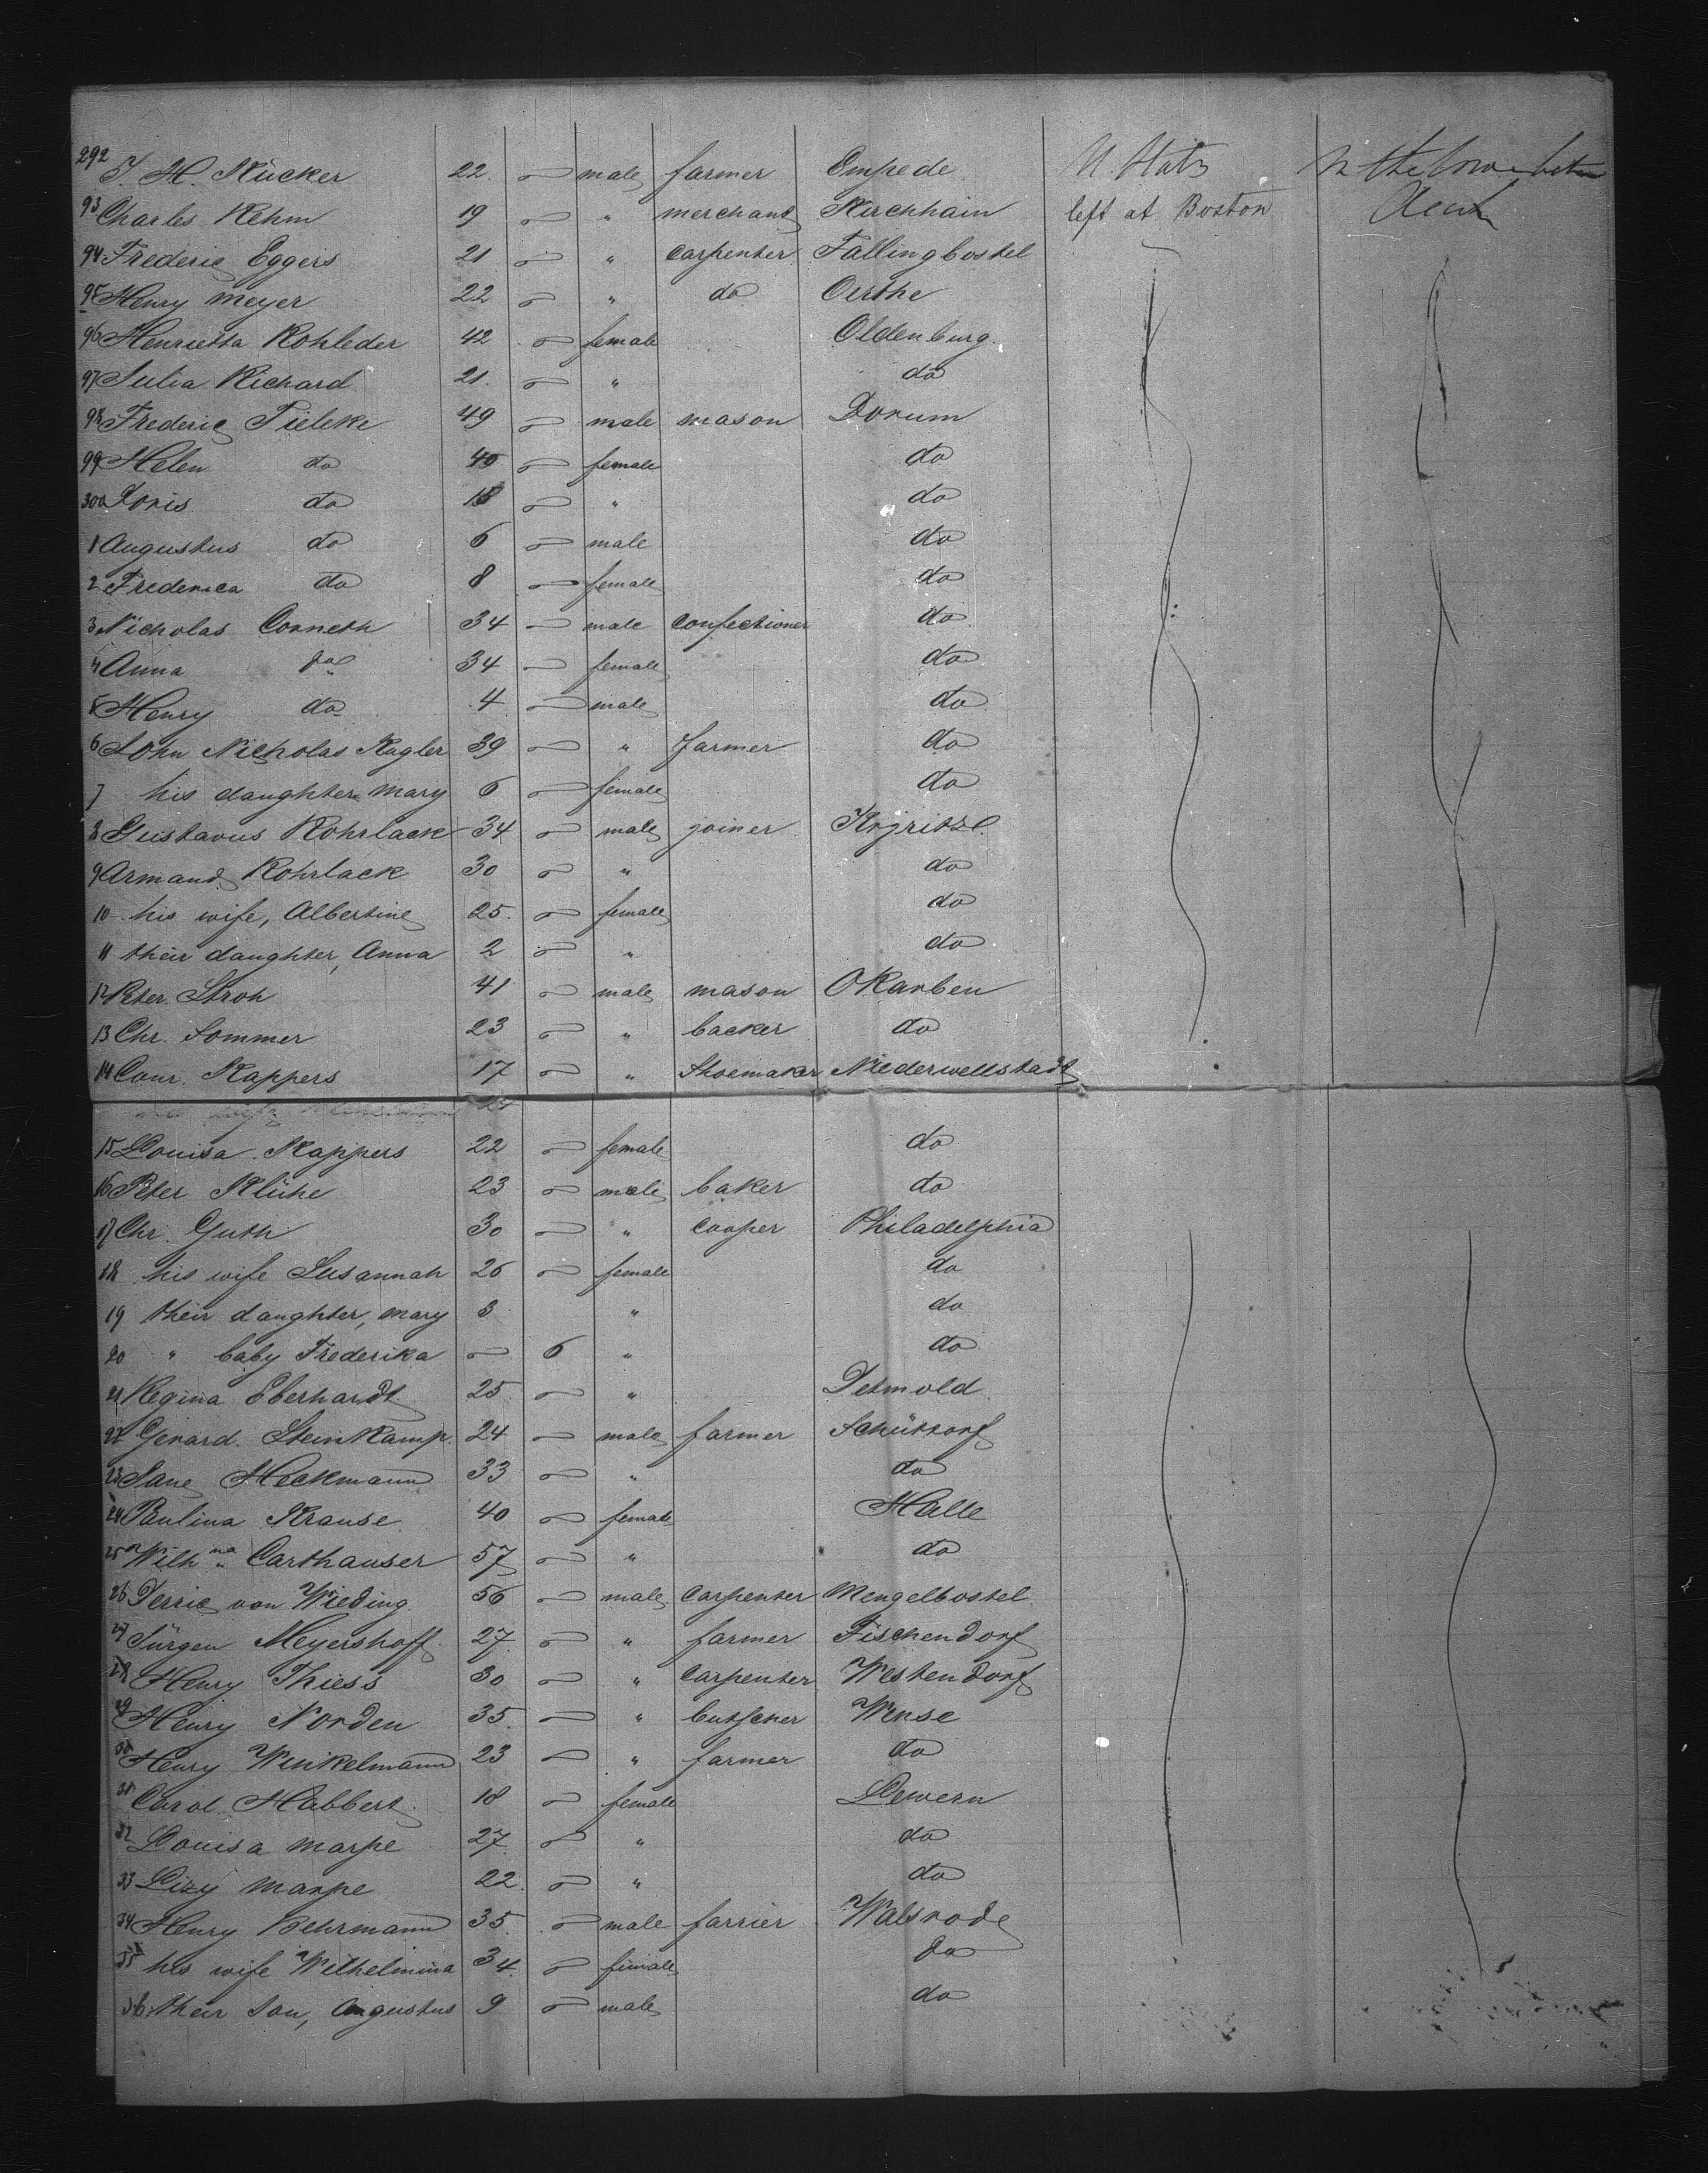 292 J. H. Kücker 22 male farmer Empede U. States In the lower between
93 Charles Rehm 19 " merchant Kirchhain left at Boston Deck
94 Frederic Eggers 21 " carpenter Fallingbostel
95 Henry Meyer 22 " do Oerthe
96 Henrietta Rohleder 42 female Oldenburg
97 Julia Richard 21 " do
98 Frederic Tieleke 49 male mason Dorum
99 Helen do 40 female do
300 Doris do 18 " do
1 Augustus do 6 male do
2 Frederica do 8 female do
3 Nicholas Corneth 34 male confectioner do
4 Anna do 34 female do
5 Henry do 4 male do
6 John Nicholas Kagler 39 " farmer do
7 his daughter Mary 6 female do
8 Gustavus Rohrlack 34 male joiner Kyritz
9 Armand Rohrlack 30 " do
10 his wife, Albertine 25 female do
11 their daughter, Anna 2 " do
12 Peter Stroh 41 male mason OKarben
13 Chr. Sommer 23 " backer do
14 Conr. Kappers 17 " Shoemaker Niederwellstadt
15 Louisa Kappers 22 female do
16 Peter Klühe 23 male baker do
17 Chr. Guth 30 " cooper Philadelphia
18 his wife Susannah 26 female do
19 their daughter, Mary 3 " do
20 " baby Frederika 6 " do
21 Regina Eberhardt 25 " Detmold
22 Gerard Steinkamp 24 male farmer Schüttorf
23 Jane Heckmann 33 " do
24 Paulina Krause 40 female Halle
25 Wilhna Carthauser 57 " do
26 Derric von Wieding 56 male carpenter Mengelbostel
27 Jürgen Meyershoff 27 " farmer Fischendorf
28 Henry Thiess 30 " carpenter Westendorf
29 Henry Norden 35 " butscher Wense
30 Henry Winkelmann 23 " farmer do
31 Carol Habbert 18 female Lewern
32 Louisa Marpe 27 " do
33 Lizy Marpe 22 " do
34 Henry Behrmann 35 male farrier Walsrode
35 his wife Wilhelmina 34 female do
36 their son, Augustus 9 male do